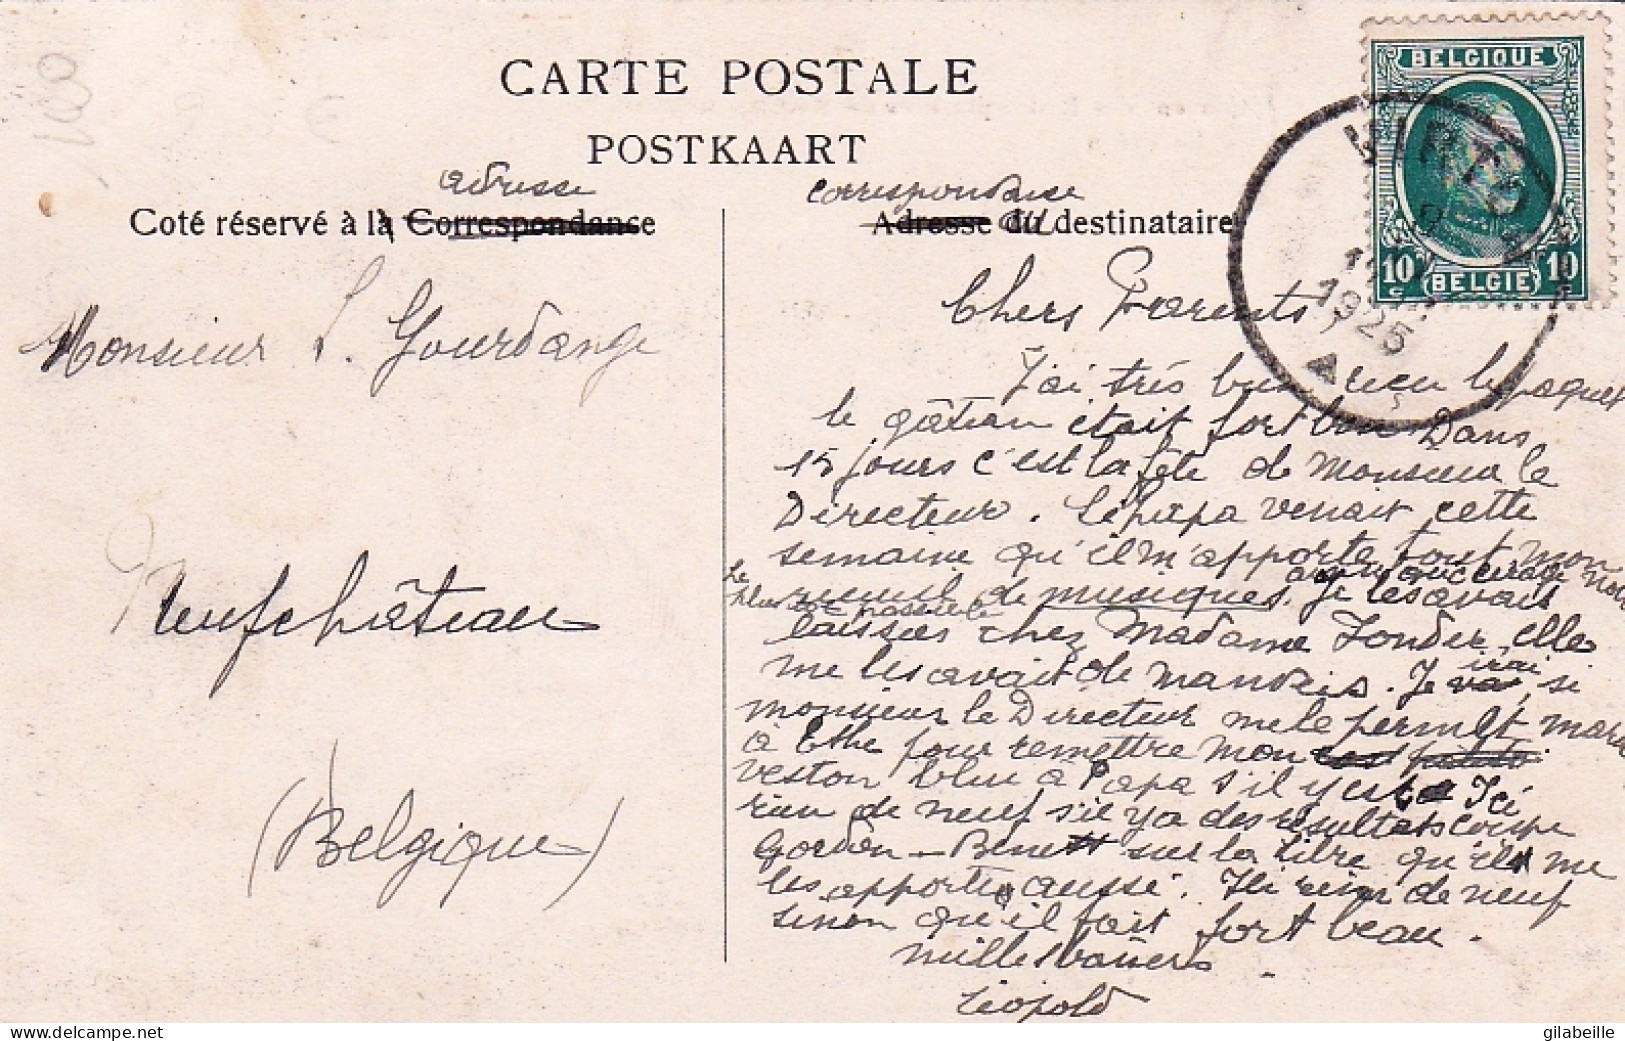 100
CARTE POSTALE
POSTKAART
adresse
correspondanse
Coté réservé à là Correspondance
Adresse du destinataire
au
BELGIQUE
10 10
BELGIE
VIRTON
1925
Monsieur L. Gourdange
Neufchâteau
(Belgique)
Chers Parents,
J'ai très bien reçu le paquet
le gâteau était fort bon Dans
15 jours c'est la fête de Monsieur le
Directeur. Si papa venait cette
semaine qu'il m'apporte tout mon
recueil de musiques. Je les avais
laissées chez Madame Fonder, elle
me les avait demandés. Je vai irai, si
monsieur le Directeur me le permet mardi
à Ethe pour remettre mon
veston bleu à Papa s'il y est Ici
rien de neuf s'il y a des résultats coupe
Gordon-Benett sur la libre qu'il me
les apporte aussi. Ici rien de neuf
sinon qu'il fait fort beau.
mille baisers
Léopold
gilabeille